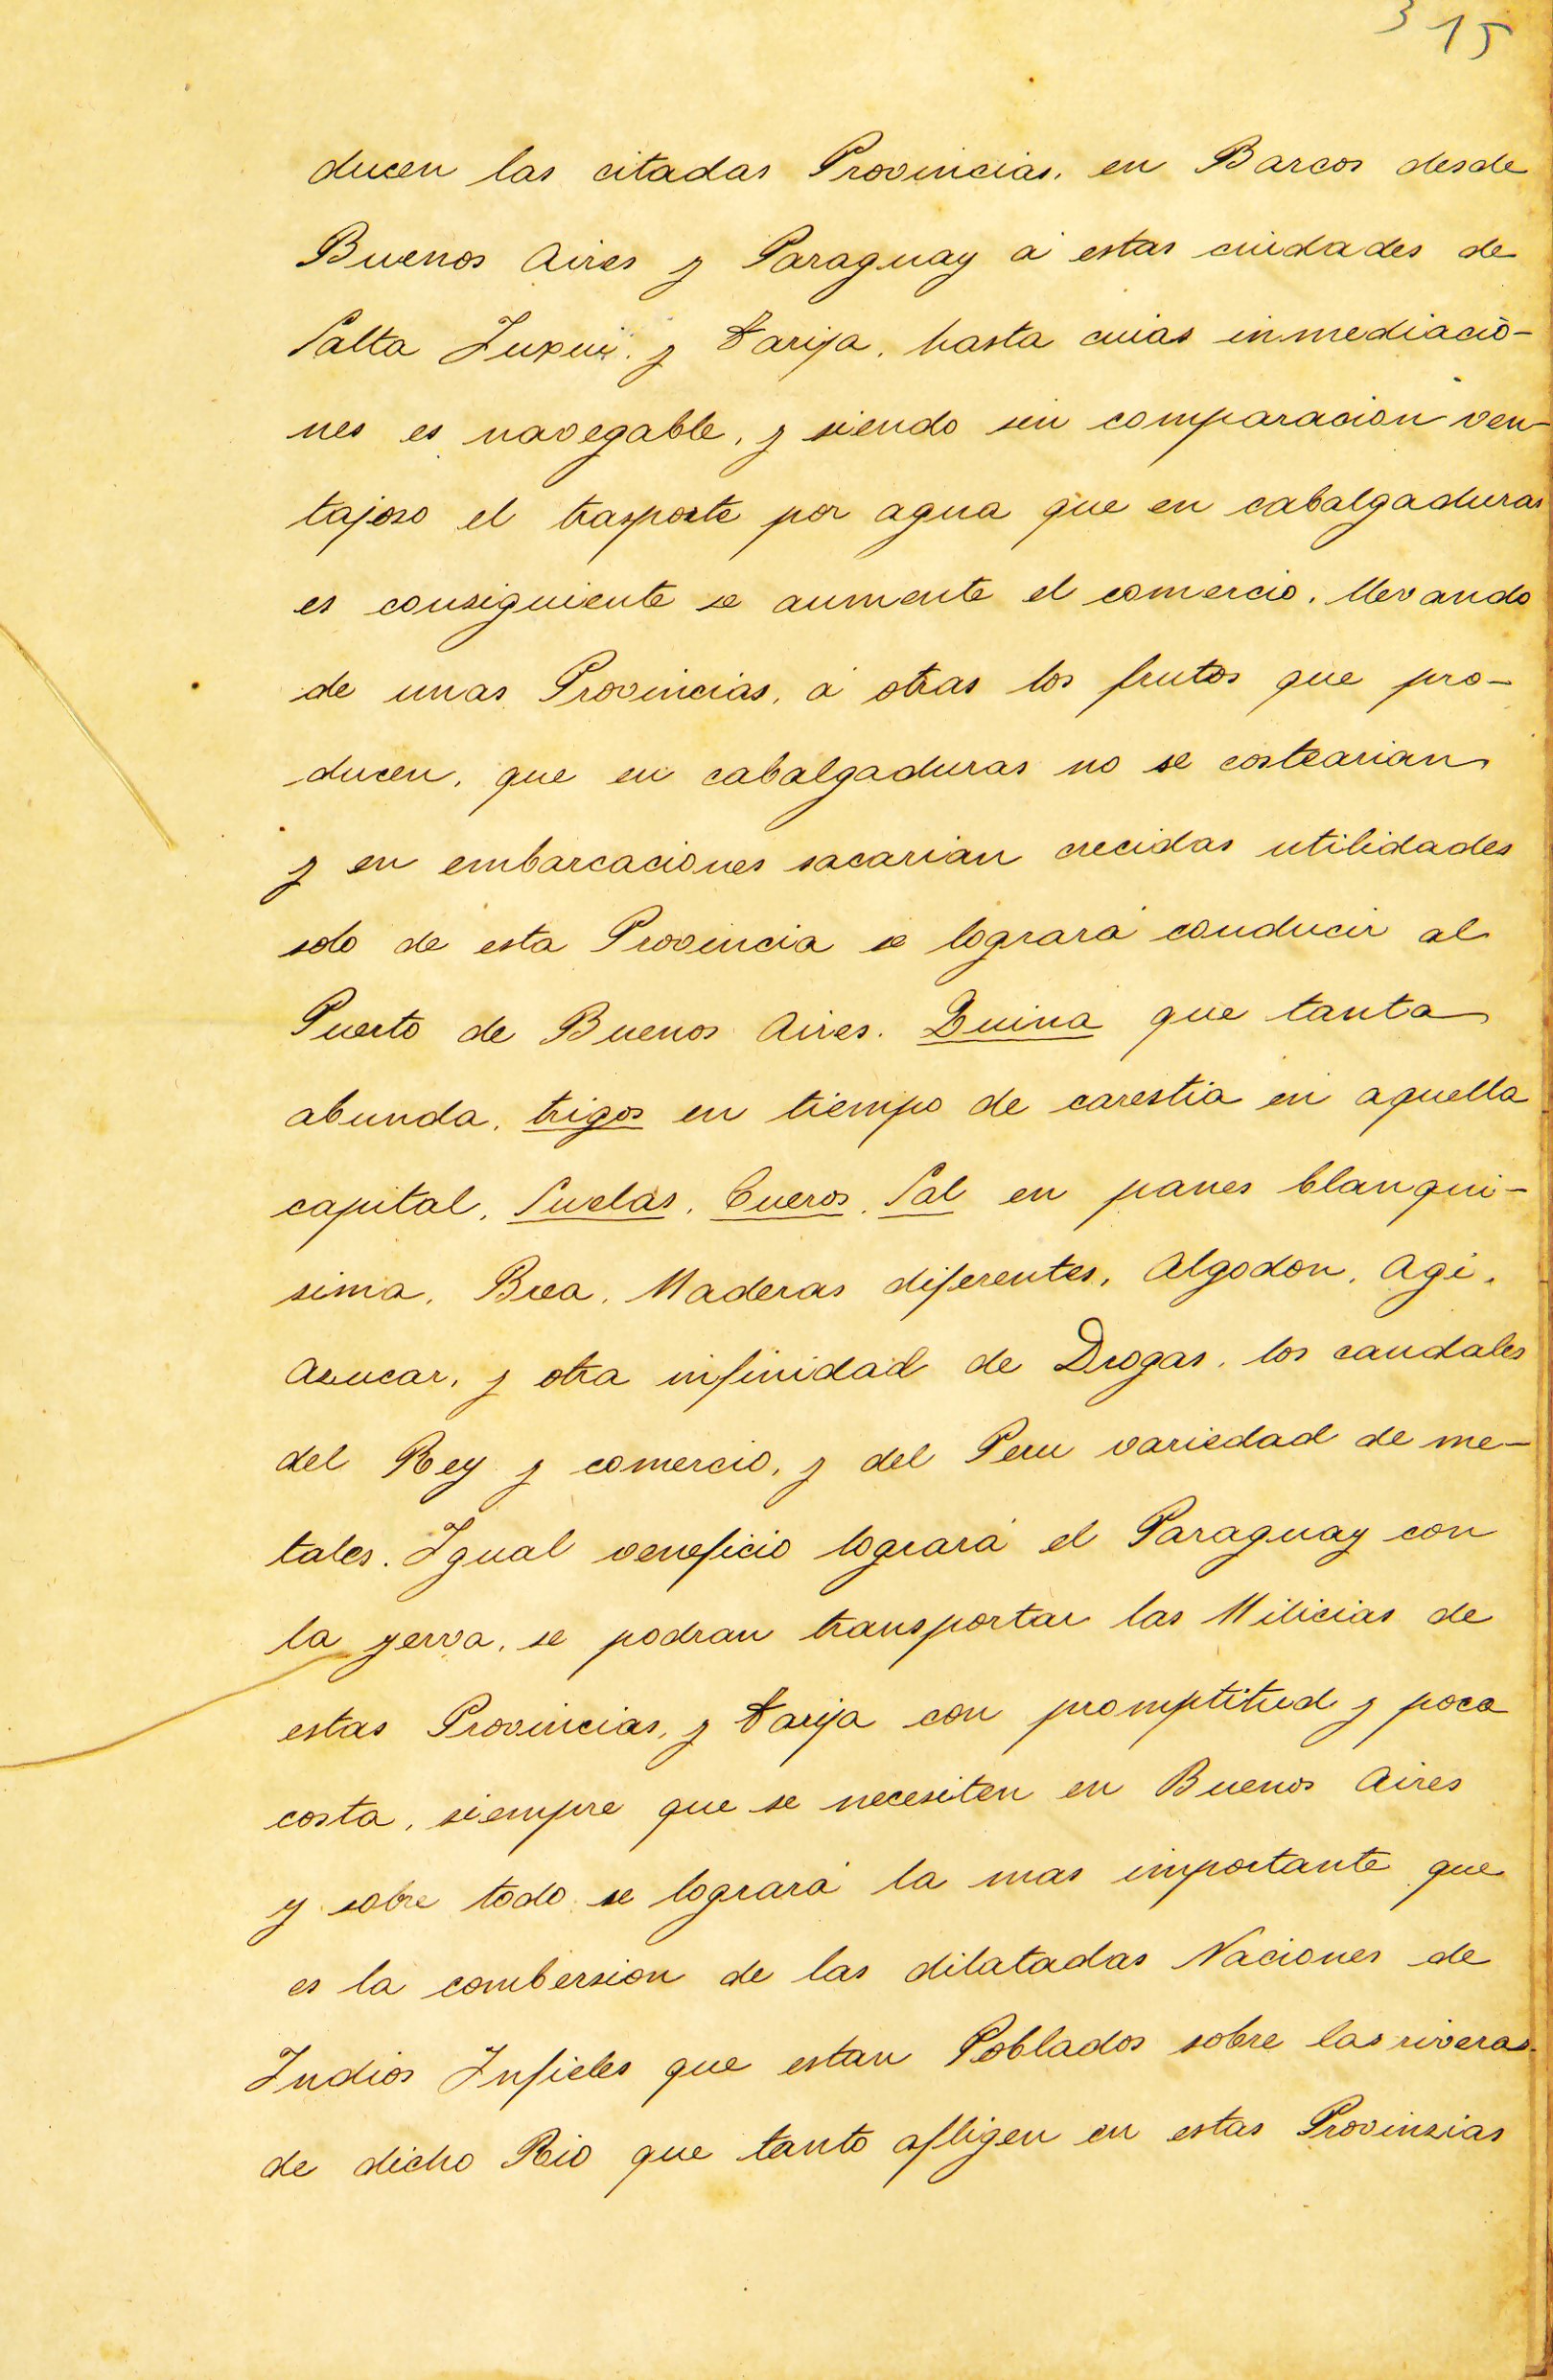 315
ducen las citadas Provincias, en Barcos desde
Buenos Aires y Paraguay á estas ciudades de
Salta Juxui, y Tarija, hasta cuias inmediacio-
nes es navegable, y siendo sin comparacion ven-
tajoso el trasporte por agua que en cabalgaduras
es consiguiente se aumente el comercio, llevando
de unas Provincias, á otras los frutos que pro-
ducen, que en cabalgaduras no se costearian
y en embarcaciones sacarian crecidas utilidades
solo de esta Provincia se logrará conducir al
Puerto de Buenos Aires. Quina que tanta
abunda, trigos en tiempo de carestia en aquella
capital, Suelas, Cueros, Sal en panes blanqui-
sima, Brea, Maderas diferentes, Algodon, Agi,
Asucar, y otra infinidad de Drogas, los caudales
del Rey y comercio, y del Peru variedad de me-
tales. Igual veneficio logrará el Paraguay con
la yerva, se podran transportar las Milicias de
estas Provincias, y Tarija con promptitud y poca
costa, siempre que se necesiten en Buenos Aires
y sobre todo se logrará la mas importante que
es la combersion de las dilatadas Naciones de
Indios Infieles que estan Poblados sobre las riveras
de dicho Rio que tanto afligen en estas Provinzias